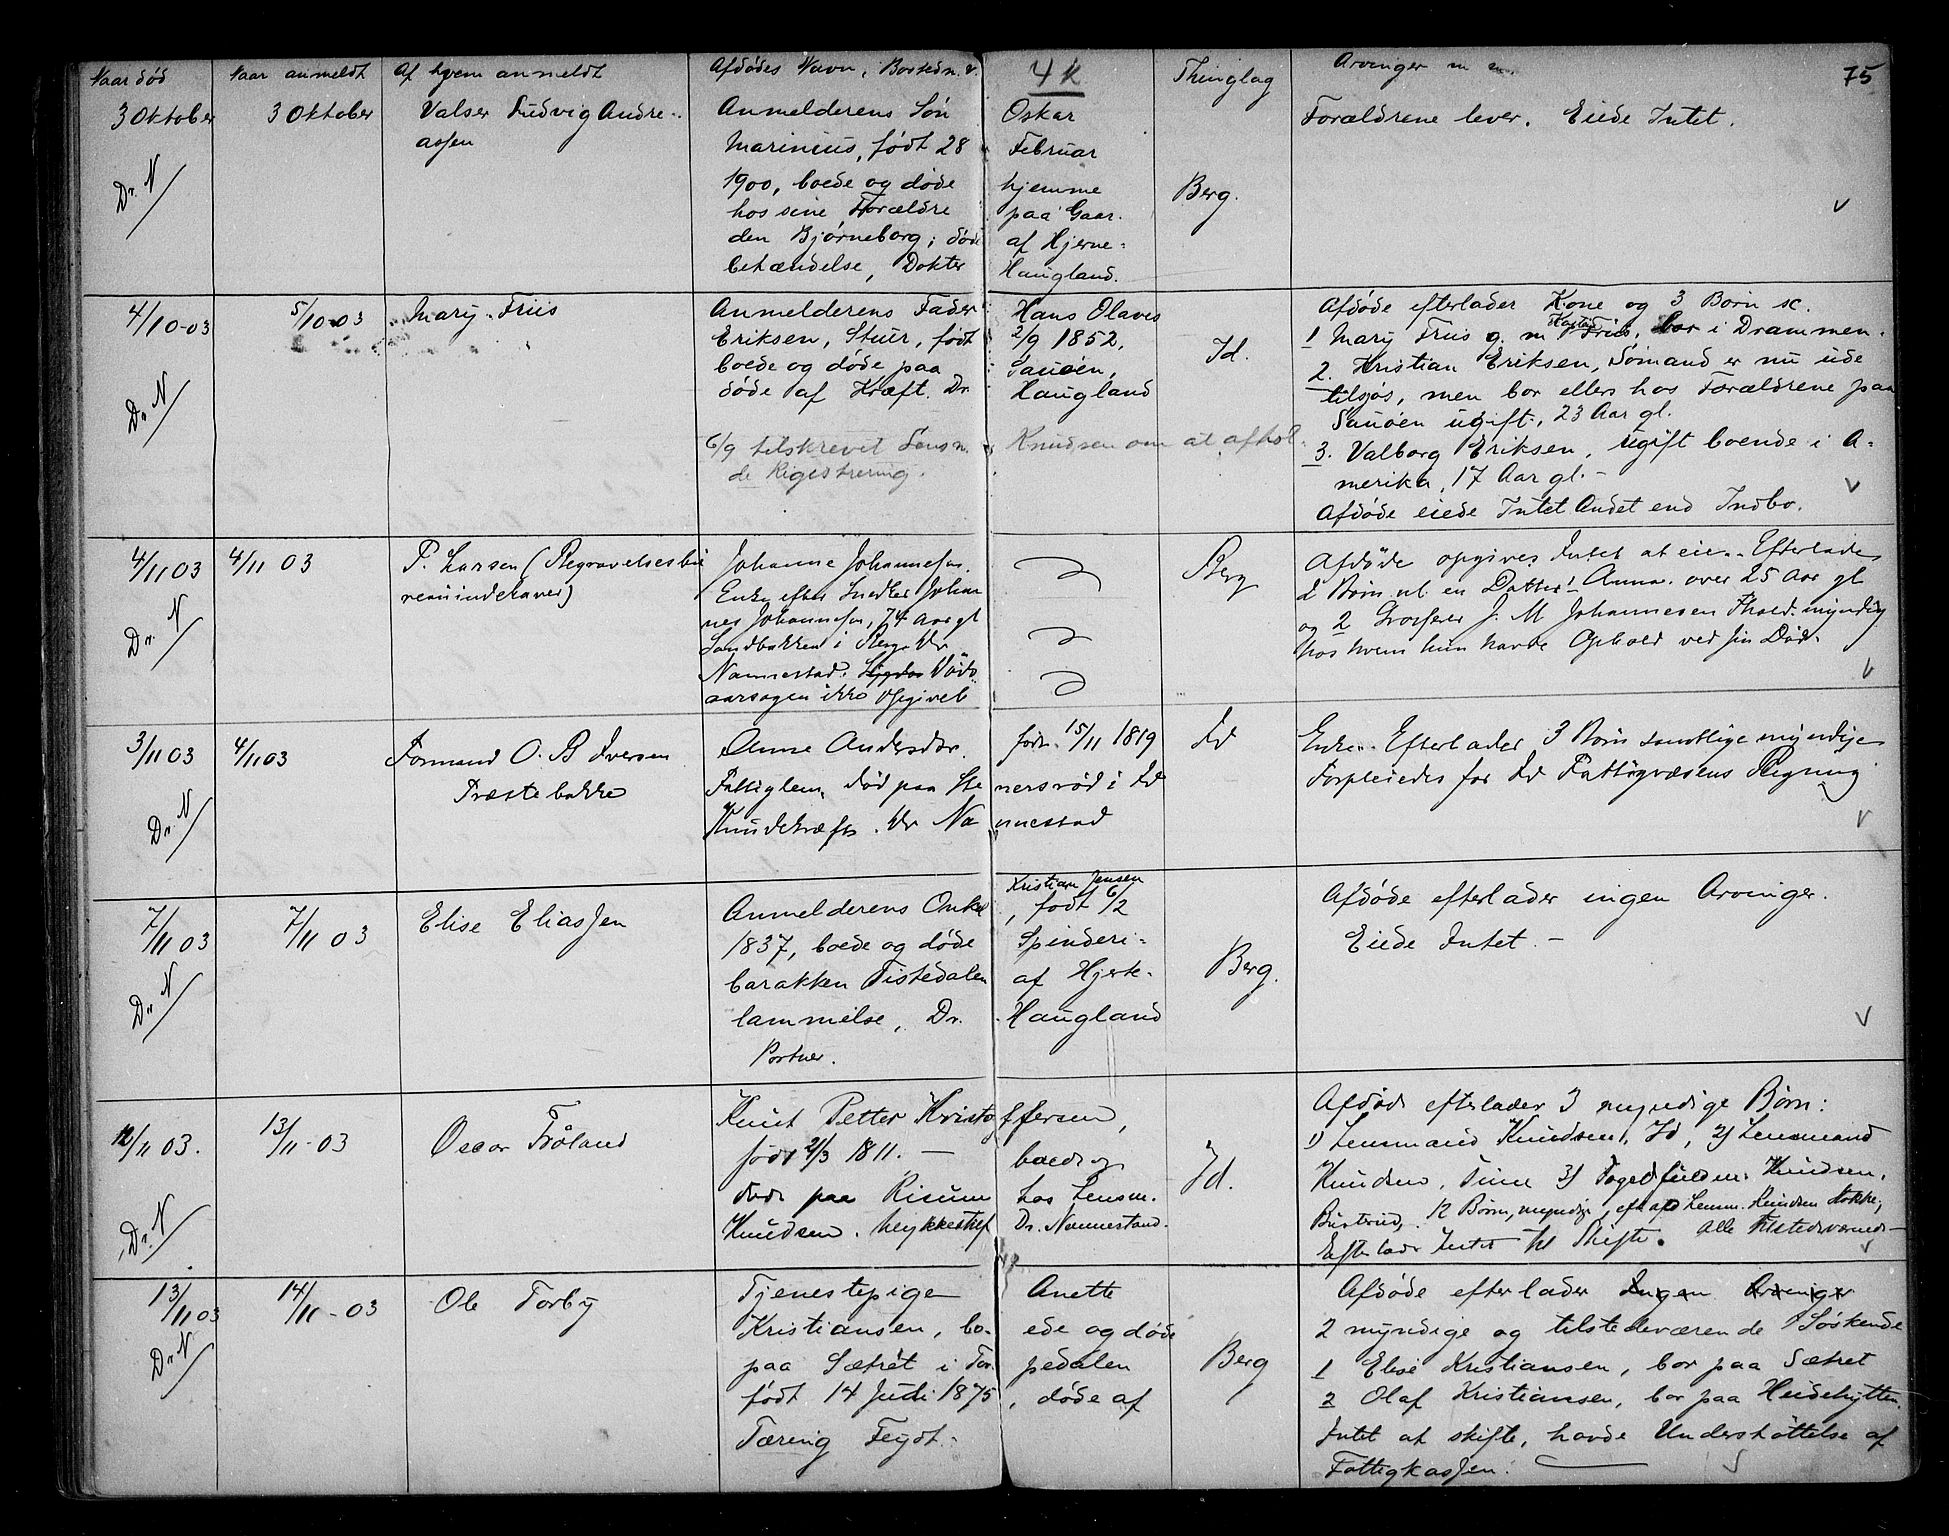 Naar død Naar anmeldt Af hvem anmeldt Afdødes Navn, Bosted m. v. 4k Thinglag Arvinger m. m. 75
3 Oktober 3 Oktober Valser Ludvig Andre- Anmelderens Søn Oskar Forældrene lever. Eiede Intet.
assen Marinius, født 28 Februar
Dr. N 1900, boede og døde hjemme Berg.
hos sine Forældre paa Gaar-
den Bjørneborg; døde af Hjerne-
betændelse, Dokter Haugland.
4/10-03 5/10-03 Mary Friis Anmelderens Fader Hans Olaves Id. Afdøde efterlader Kone og 3 Børn sc.
Eriksen, Stuer, født 2/9 1852, 1 Mary Friis g. m. Friis, bor i Drammen.
boede og døde paa Sauøen, 2. Kristian Eriksen, Sømand er nu ude
Dr. N døde af Kræft. Dr. Haugland tilsjøs, men bor ellers hos Forældrene paa
Sauøen ugift, 23 Aar gl.
6/9 tilskrevet Lensm. Knudsen om at afhol- 3. Valborg Eriksen, ugift boende i A-
de Rigistrering. merika, 17 Aar gl.-
Afdøde eiede Intet Andet end Indbo.
4/11 03 4/11 03 P. Larsen (Begravelsesbu- Johanne Johannesen. Berg Afdøde opgives Intet at eie. Efterlader
reauindehaver) Enke efter Snedker Johan 2 Børn nl. en Datter 1 Anna over 25 Aar gl
Dr. N nes Johannesen, 74 Aar gl og 2 Grosserer J. M Johannesen Fhald. myndig
Sandbakken i Berg. Dr hos hvem hun havde Ophold ved sin Død.
Nannestad. Døds-
aarsagen ikke opgivet
3/11 03 4/11 03 Formand O. B Iversen Anne Andersdtr. født 15/11 1819 Id Enke. Efterlader 3 Børn samtlige myndige
Præstebakke Fattiglem, død paa Ste nersrød i Id Forpleiedes for Id Fattigvæsens Regning
Dr. N Kræft. Dr Na nnestad
7/11 03 7/11 03 Elise Eliassen Anmelderens Onkel Kristian Jensen, født 6/2 Berg. Afdøde efterlader ingen Arvinger.
1837, boede og døde Spinderi- Eiede Intet. -
Dr. N barakken Tistedalen af Hjerte-
lammelse, Dr. Haugland
Portner.
12/11 03. 13/11-03 Oscar Frøland Knut Petter Kristo ffersen, Id. Afdøde efterlader 3 myndige Børn:
født 21/3 1811. - boede og 1) Lensmand Knudsen, Id, 2) Lensmand
Dr. N døde paa Risum hos Lensm. Knudsen, Tune 3) Knudsen,
Knudsen. Dr. Nannestad. Børn, myndige, efter afd Lensm. Knudsen
Efterlader Intet til Skifte. Alle tilstedeværende
13/11 03 14/11-03 Ole Torby Tjenestepige Anette Berg Afdøde efterlader Ingen Arvinger
Kristiansen, bo- ede og døde 2 myndige og tilstedeværende Søskende
Dr N paa Sætret i Tor- pedalen 1 Elise Kristiansen, bor paa Sætret
født 14 Juli 1875, døde af 2 Olaf Kristiansen, bor paa Heidehytten.
Tæring Feydt. Intet at skifte, havde Understøttelse af
Fattigkassen.